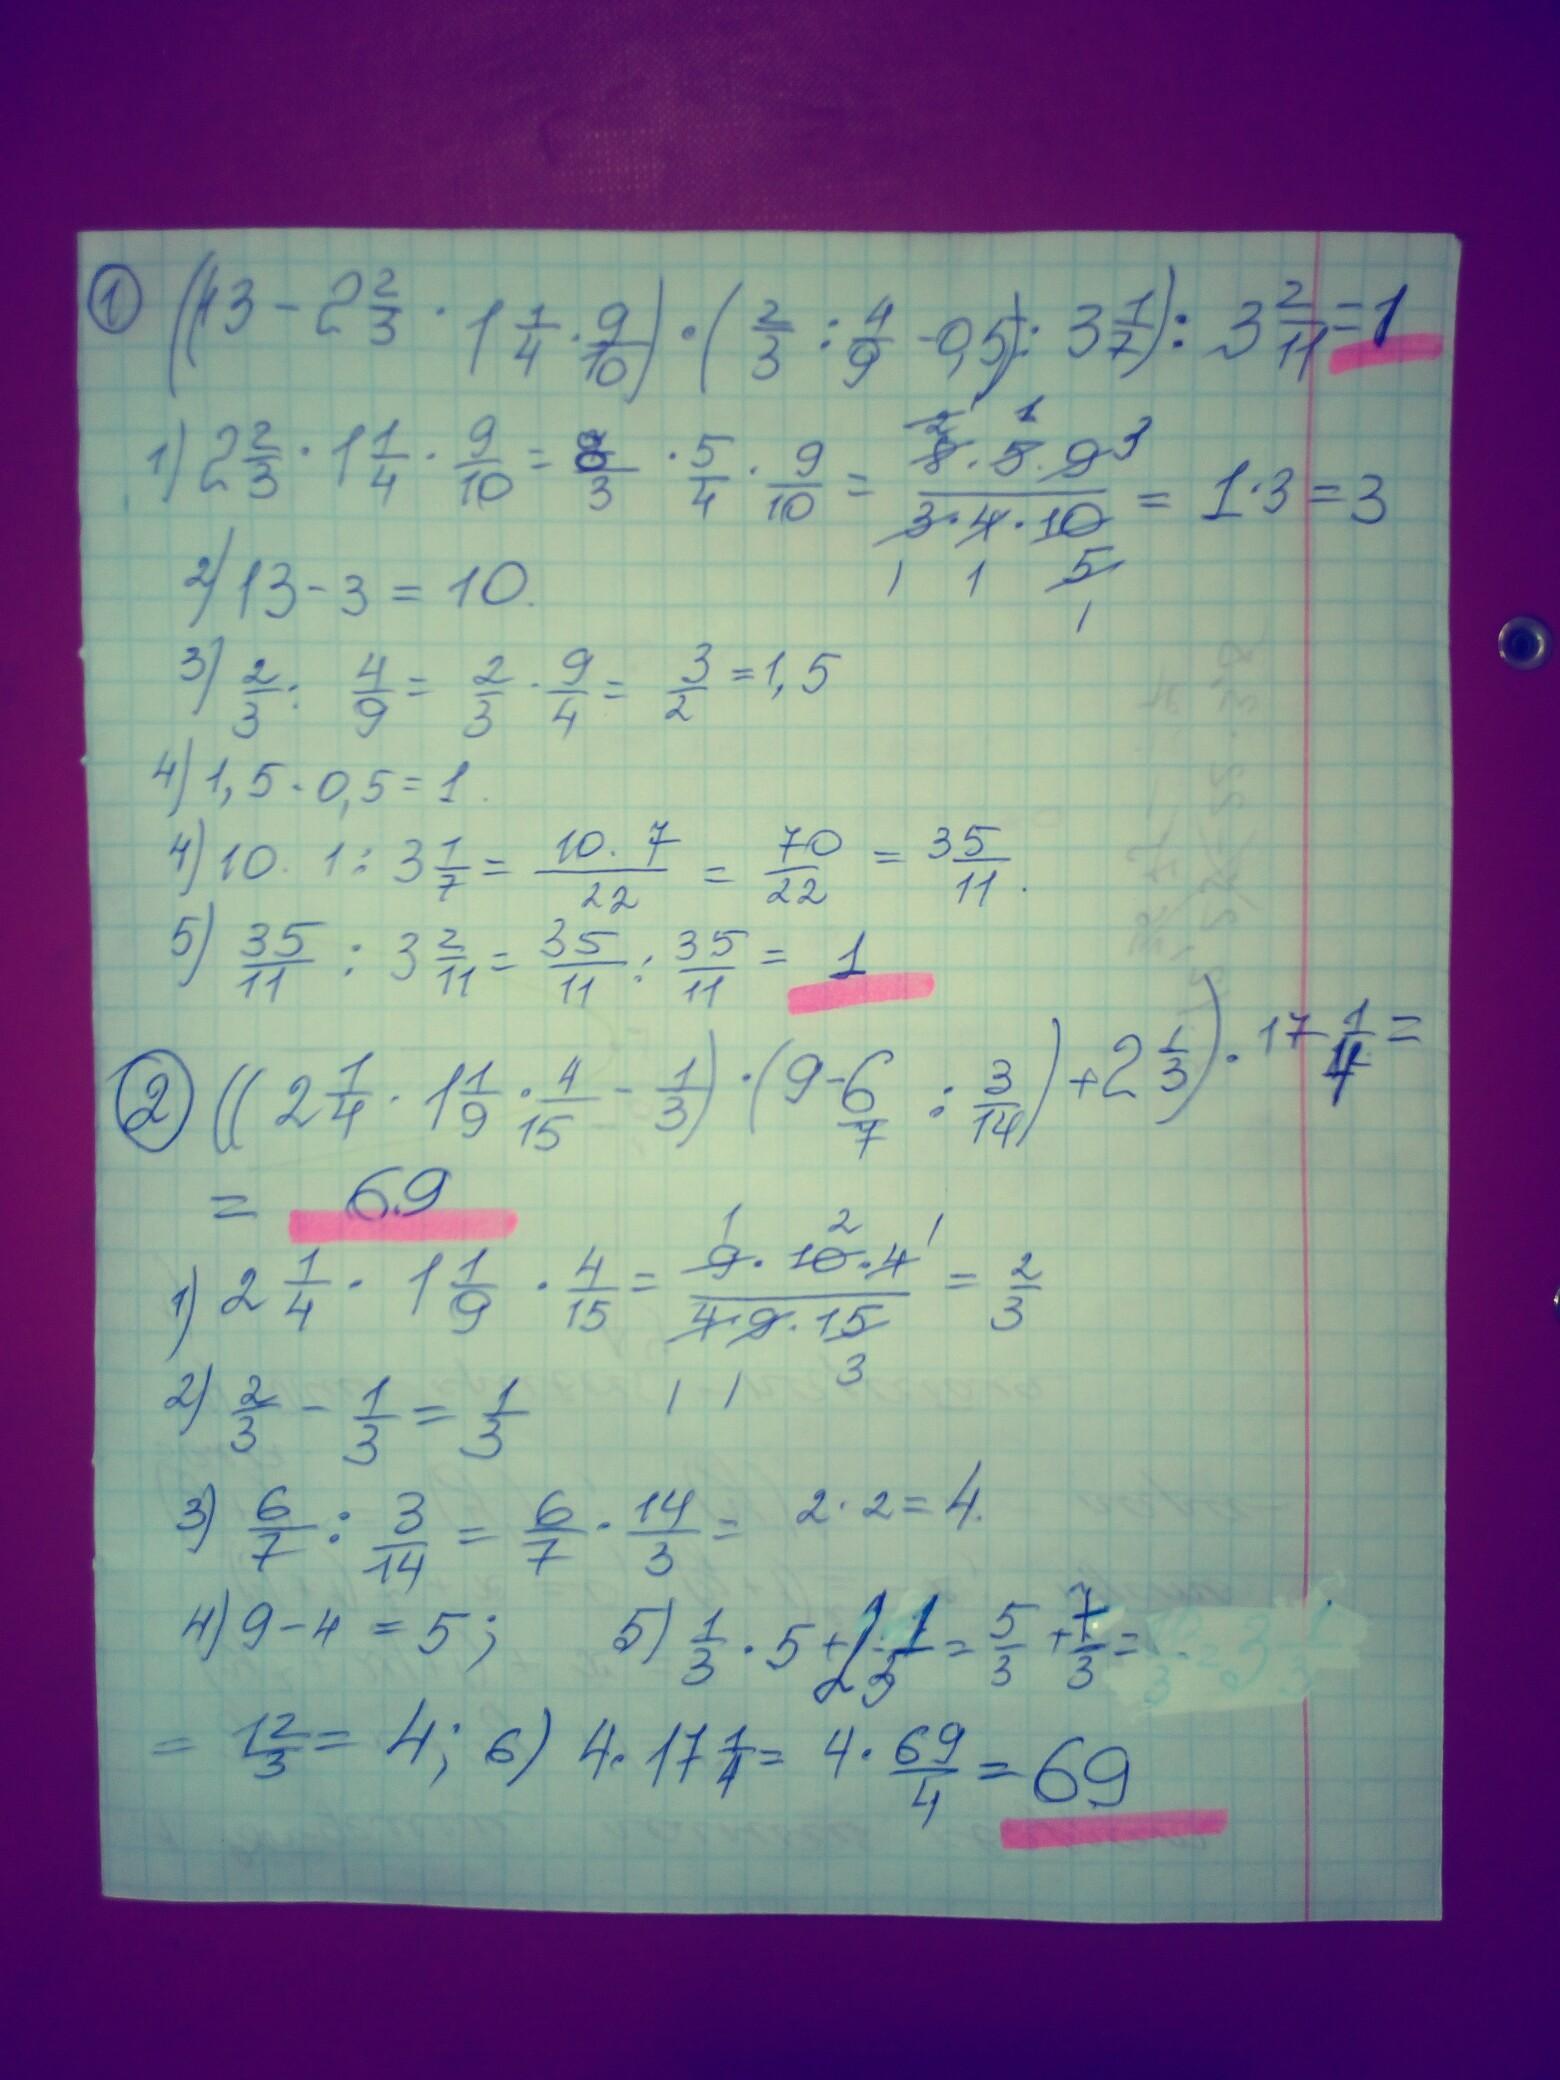 ① ((13 - 2 2/3 · 1 1/4 · 9/10) · (2/3 : 4/9 - 0,5) : 3 1/7) : 3 2/11 = 1
1) 2 2/3 · 1 1/4 · 9/10 = 8/3 · 5/4 · 9/10 = 8·5·9/3·4·10 = 1·3 = 3
2) 13 - 3 = 10.
3) 2/3 : 4/9 = 2/3 · 9/4 = 3/2 = 1,5
4) 1,5 - 0,5 = 1.
4) 10 · 1 : 3 1/7 = 10·7/22 = 70/22 = 35/11.
5) 35/11 : 3 2/11 = 35/11 : 35/11 = 1
② ((2 1/4 · 1 1/9 · 4/15 - 1/3) · (9 - 6/7 : 3/14) + 2 1/3) · 17 1/4 =
= 69
1) 2 1/4 · 1 1/9 · 4/15 = 9·10·4/4·9·15 = 2/3
2) 2/3 - 1/3 = 1/3
3) 6/7 : 3/14 = 6/7 · 14/3 = 2·2 = 4.
4) 9 - 4 = 5; 5) 1/3 · 5 + 2 1/3 = 5/3 + 7/3 =
= 12/3 = 4; 6) 4 · 17 1/4 = 4 · 69/4 = 69